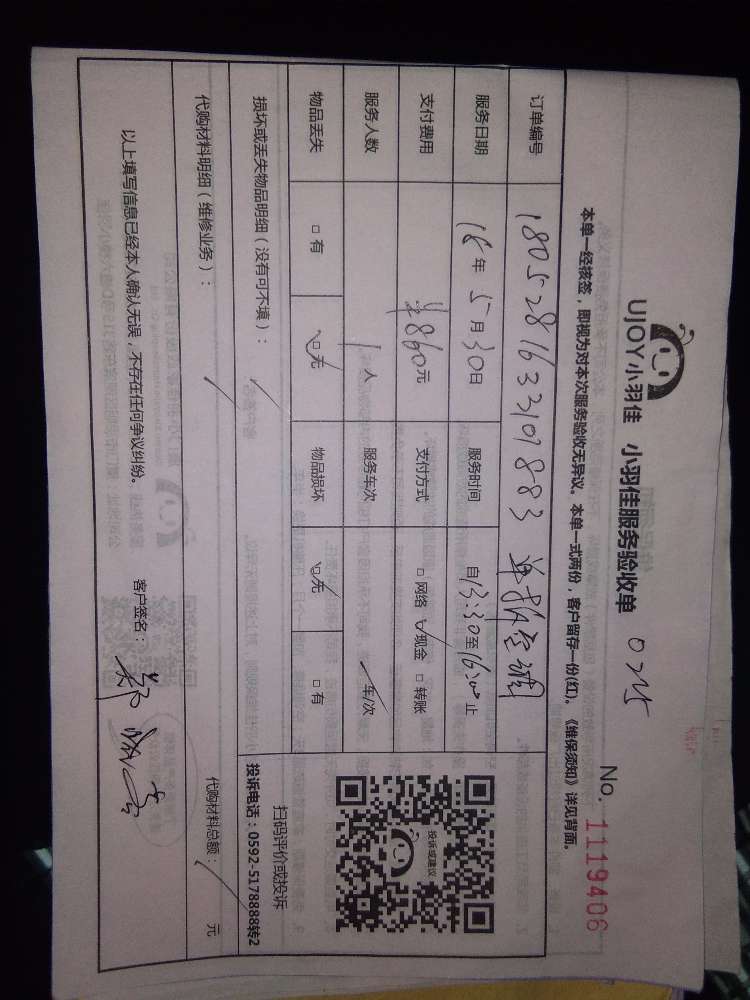 UJOY小羽佳 小羽佳服务验收单 025
No. 1119406
本单一经核签，即视为对本次服务验收无异议。本单一式两份，客户留存一份(红)。《维保须知》详见背面。
订单编号 180528163310883
服务日期 18年5月30日 服务时间 自13:30至16:00止
支付费用 ¥860元 支付方式 □ 网络 ☑现金 □ 转账
服务人数 1人 服务车次 /车/次
物品丢失 □ 有 ☑无 物品损坏 ☑无 □ 有
投诉或建议
扫码评价或投诉
投诉电话：0592-5178888转2
损坏或丢失物品明细（没有可不填）： /
代购材料明细（维修业务）： / 代购材料总额： / 元
以上填写信息已经本人确认无误，不存在任何争议纠纷。 客户签名：郑